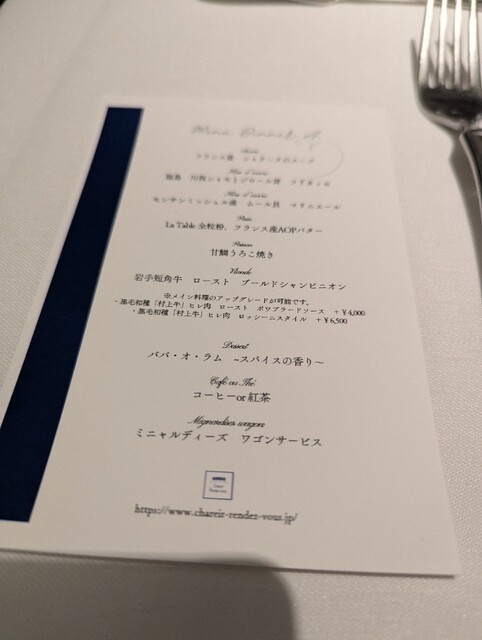 Menu Dinner
フランス産
Hors d'œuvre
Hors d'œuvre
モンサンミッシェル産　ムール貝　マリニエール
Pain
La Table 全粒粉、フランス産AOPバター
Poisson
甘鯛うろこ焼き
Viande
岩手短角牛　ロースト　ブールドシャンピニオン
※メイン料理のアップグレードが可能です。
・黒毛和種「村上牛」ヒレ肉　ロースト　ポワブラードソース　+￥4,000
・黒毛和種「村上牛」ヒレ肉　ロッシーニスタイル　+￥6,500
Dessert
ババ・オ・ラム　~スパイスの香り~
Café ou Thé
コーヒーor紅茶
Mignardises wagon
ミニャルディーズ　ワゴンサービス
https://www.chareir-rendez-vous.jp/